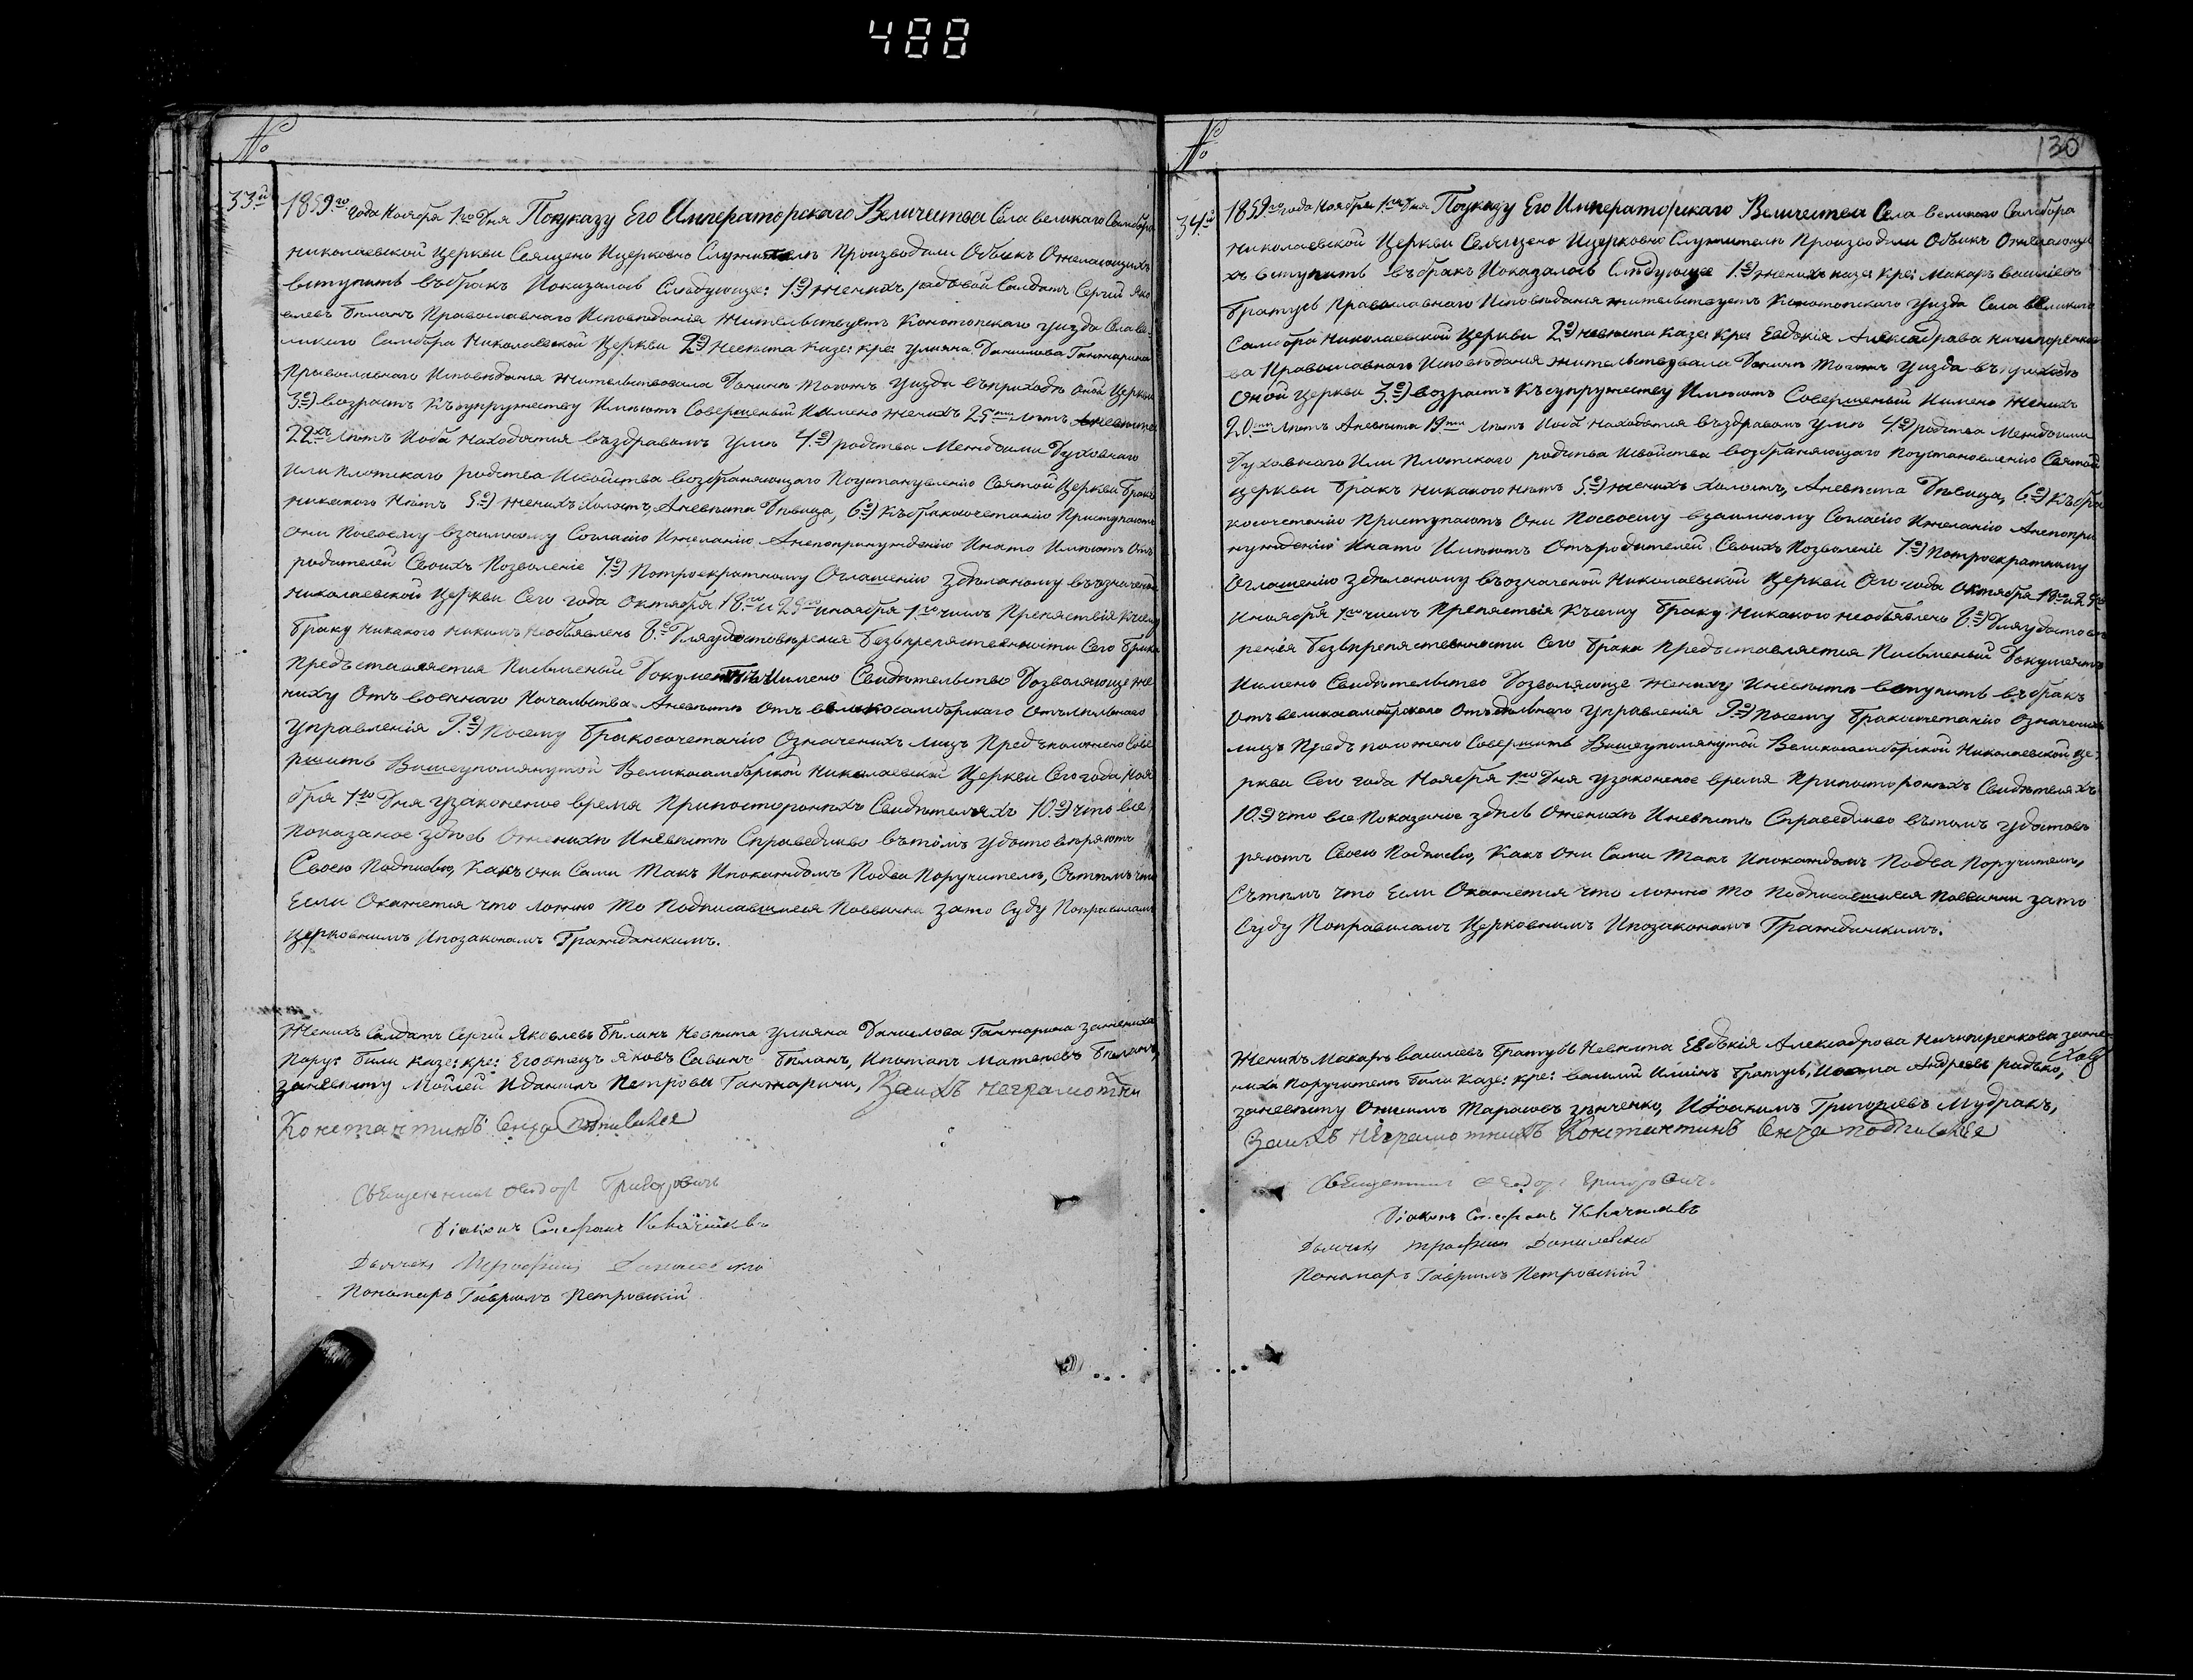 488
№
33й
1859го года Ноября 1го Дня Поуказу Его Императорскаго Величества Села великаго Самбора
Николаевской Церкви Священо Ицерковно Служители Производили Обыскъ Ожелающихъ
вступить вобракъ Показалось Следующее: 1е) Женихъ рядовой Салдатъ Сергий Яко
влевъ Биланъ Православнаго Исповедания Жительствуетъ Конотопскаго уизда Села ве-
ликого Самбора Николаевской Церкви 2е) Невѣста казе: кре: Улияна Данилова Ганжарина
Православнаго Исповѣдания Жительствовала Донинѣ Тогожъ уизда въприходѣ оной Церкви
3е) возрастъ Късупружеству Имѣютъ Совершеный Имено женихъ 25ти лѣтъ Аневѣста
22хъ Лѣтъ Иоба находятся въздравомъ умѣ 4е) родства Междоими Духовнаго
или плотскаго родства Исвойства возбраняющаго Поустановлению Святой Церкви бракъ
никакого Нѣтъ 5е) Женихъ Холостъ, Аневѣста Дѣвица, 6е) Къбракосочетанию Приступаютъ
они Посвоему взаимному Согласию Ижеланию Анепопринуждению Инато Имѣютъ Отъ
родителей Своихъ Позволение 7е) Потроекратному Оглашению Здѣланому въозначеной
Николаевской Церкви Сего года Октября 18го и 25го иноября 1го числъ Препятствия Късему
браку Никакого Никимъ Необъявлено 8е) Дляудостовѣрения безвпрепятственности Сего брака
Предъставляется Письменый Документъ Имено Свидѣтельство Дозволяюще же
ниху Отъ военнаго Началства Аневѣстѣ Отъ великосамборскаго Отъдѣльнаго
Управления 9е) Посему бракосочетанию Означенихъ лицъ Предъположено Сове
ршить Вишеупомянутой Великосамборской Николаевской Церкви Сего года Ноя
бря 1го Дня узаконеное время Припостороннихъ Свидѣтеляхъ 10е) что все
Показаное здѣсь Оженихѣ Иневѣстѣ Справедливо вътомъ удостовѣряютъ
Своею Подписью, Какъ они Сами Такъ Ипокаждомъ Подва Поручители, Сътѣмъ что
Если Окажется что ложно То Подписавшиеся Повинни зато Суду Поправиламъ
Церковнимъ Ипозаконамъ Гражданскимъ.
Женихъ Салдатъ Сергий Яковлевъ Биланъ Невѣста Улияна Данилова Ганжарина зажениха
Пору: били казе: кре: Его отецъ Яковъ Савинъ Биланъ, Ипотапъ Матвѣевъ Биланъ,
заневѣсту Моисей Иданилъ Петрови Ганжарини, Заихъ неграмотни
Константинъ Сенча подписався
Священникъ Феодоръ Григоровичъ
Діаконъ Стефанъ
Дьячекъ Трофимъ Данилевский
Пономарь Гаврилъ Петровскій
№
130
34й
1859го года Ноября 1го Дня Поуказу Его Императорскаго Величества Села великого Самбора
Николаевской Церкви Священо Ицерковно Служители Производили Обыскъ Ожелающи
хъ вступить въбракъ Показалось Слѣдующее 1е) Женихъ казе: кре: Макаръ василиевъ
братусь Православнаго Исповѣдания жительствуетъ Конотопскаго уизда Села великого
Самбора Николаевской Церкви 2е) Невѣста казе: кре: Евдокия Александрова ничипоренко
ва Православнаго Исповѣдания жительствовала Донинѣ Тогожъ уизда въприходѣ
оной церкви 3е) возрастъ Късупружеству Имѣютъ Совершеный Имено Женихъ
20ти Лѣтъ Аневѣста 19ти лѣтъ Иоба находятся въздравомъ умѣ 4е) родства Междоими
Духовнаго Или Плотскаго родства Исвойства возбраняющаго Поустановлению Святой
церкви бракъ Никакого Нѣтъ 5е) Женихъ Холостъ, Аневѣста Дѣвица, 6е) Къбра
косочетанию Приступаютъ Они Посвоему взаимному Согласию Ижеланию Анепопри
нуждению Инато Имѣютъ Отъродителей Своихъ Позволение 7е) Потроекратному
Оглашению здѣланому въозначеной Николаевской Церкви Сего года Октября 18го и 25го
Иноября 1го числъ Препятствия Късему браку Никакого Необъявлено 8е) Дляудостовѣ
рения безвпрепятственности Сего брака Предъставляется Письменый Документъ
Имено Свидѣтельство Дозволяюще Жениху Иневѣстѣ вступить въбракъ
Отъ великосамборскаго Отъдѣльнаго Управления 9е) Посему бракосочетанию Означенихъ
лицъ Предъположено Совершить Вишеупомянутой Великосамборской Николаевской Це-
ркви Сего года Ноября 1го Дня узаконеное время Припостороннихъ Свидѣтеляхъ
10е) что все Показаное здѣсь Оженихѣ Иневѣстѣ Справедливо вътомъ удостовѣ
ряютъ Своею Подписью, Какъ они Сами Такъ Ипокаждомъ Подва Поручители,
Сътѣмъ что Если Окажется что ложно То Подписавшиеся Повинни зато
Суду Поправиламъ Церковнимъ Ипозаконамъ Гражданскимъ.
Женихъ Макаръ василиевъ братусь Невѣста Евдокия Александрова Ничипоренкова заже-
ниха Поручители били казе: кре: василий Илиинъ братусь, Андреевъ радько,
заневѣсту Онисимъ Тарасовъ зѣнченко, Иоакимъ Григориевъ Мудракъ,
Заихъ неграмотнихъ Константинъ Сенча подписався
Священникъ Феодоръ Григоровичъ
Діаконъ Стефанъ
Дьячекъ Трофимъ Данилевский
Пономарь Гаврилъ Петровскій